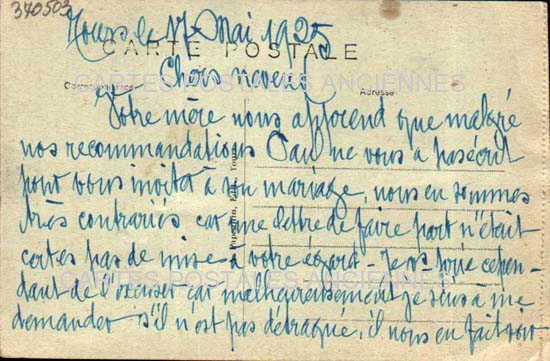 370503
Tours le 17 Mai 1925
CARTE POSTALE
Chers neveux
CARTES POSTALES ANCIENNES
Correspondance
Adresse
Votre mère nous apprend que malgré
nos recommandations Jau ne vous a pas écrit
pour vous inviter à son mariage, nous en sommes
très contrariés car une lettre de faire part n'était
certes pas de mise à votre égard - Je vs prie cepen-
CARTES POSTALES ANCIENNES
dant de l'excuser car malheureusement je suis à me
demander s'il n'est pas détraqué, il nous en fait voir